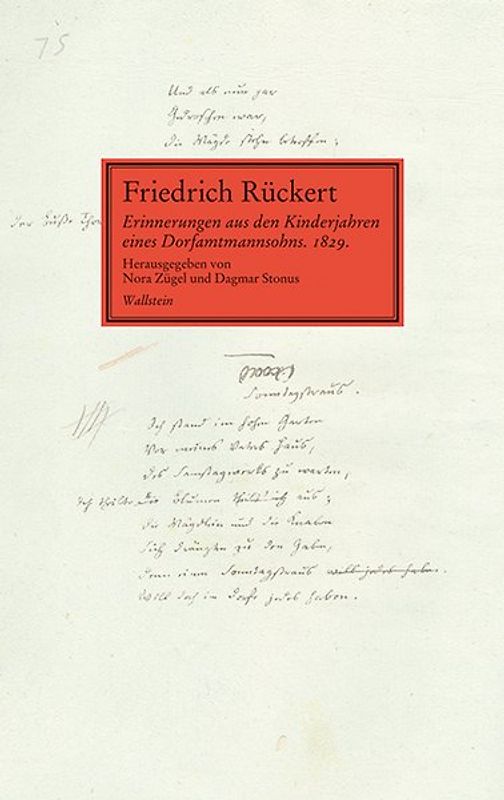 75
Und als nun gar
Gedroschen war,
die Mägde stehn betroffen;
der Küße
Friedrich Rückert
Erinnerungen aus den Kinderjahren
eines Dorfamtmannsohns. 1829.
Herausgegeben von
Nora Zügel und Dagmar Stonus
Wallstein
Sonntagstraus.
Ich stand im hohen Garten
Vor meines Vaters Haus,
des Samstagwerks zu warten,
Ich theilte die Blumen aus;
die Mägdlein und die Knaben
Sich drängten zu den Gaben,
denn einen Sonntagstraus will jedes haben.
Will doch im Dorfe jedes haben.